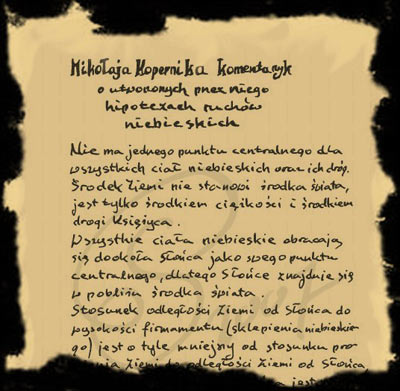 Mikołaja Kopernika komentaryk
o utworzonych przez niego
hipotezach ruchów
niebieskich
Nie ma jednego punktu centralnego dla
wszystkich ciał niebieskich oraz ich dróg.
Środek Ziemi nie stanowi środka świata,
jest tylko środkiem ciężkości i środkiem
drogi Księżyca.
Wszystkie ciała niebieskie obracają
się dookoła Słońca jako swego punktu
centralnego, dlatego Słońce znajduje się
w pobliżu środka świata.
Stosunek odległości Ziemi od Słońca do
wysokości firmamentu (sklepienia niebieskie-
go) jest o tyle mniejszy od stosunku pro-
Ziemi do odległości Ziemi od Słońca,
jest